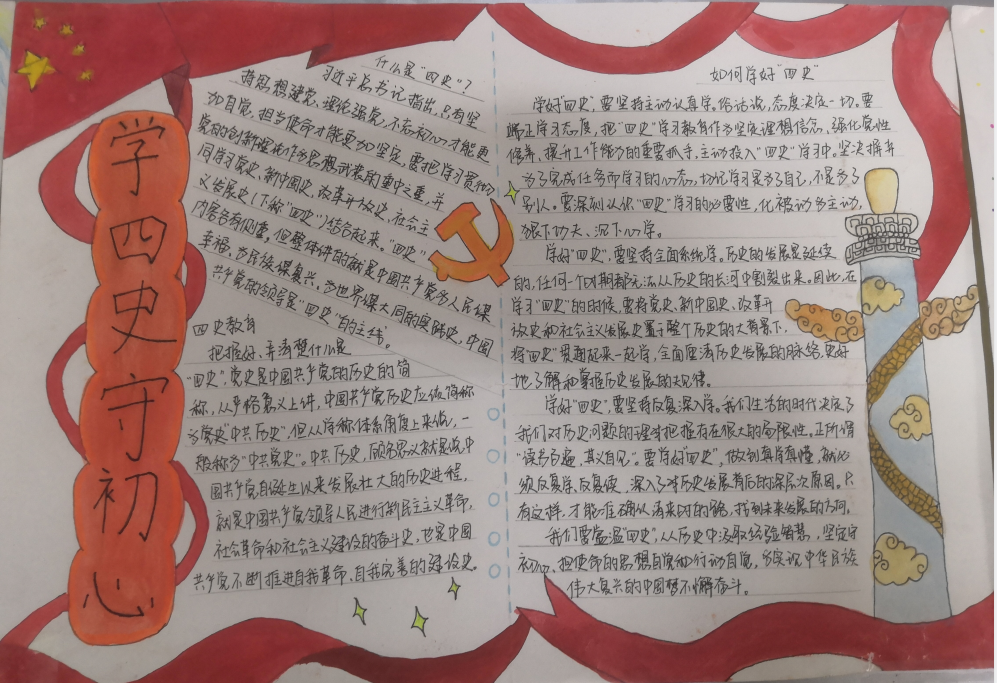 学四史守初心
什么是“四史”？
习近平总书记指出，只有坚
持思想建党、理论强党，不忘初心才能更
加自觉，担当使命才能更加坚定，要把学习贯彻
党的创新理论作为思想武装的重中之重，并
同学习党史、新中国史、改革开放史、社会主
义发展史（下称“四史”）结合起来。“四史”
内容各有侧重，但整体讲的就是中国共产党为人民谋
幸福、为民族谋复兴、为世界谋大同的实践史，中国
共产党的领导是“四史”的主线。
四史教育
把握好、弄清楚什么是
“四史”，党史是中国共产党的历史的简
称，从严格意义上讲，中国共产党历史应该简称
为党史“中共历史”，但从学科体系角度上来说，一
般称为“中共党史”。中共历史，顾名思义就是说中
国共产党自诞生以来发展壮大的历史进程，
就是中国共产党领导人民进行新民主主义革命，
社会革命和社会主义建设的奋斗史，也是中国
共产党不断推进自我革命、自我完善的建设史。
如何学好“四史”
学好“四史”，要坚持主动认真学。俗话说，态度决定一切。要
端正学习态度，把“四史”学习教育作为坚定理想信念、强化党性
修养、提升工作能力的重要抓手，主动投入“四史”学习中。坚决摒弃
为了完成任务而学习的心态，切记学习是为了自己，不是为了
别人。要深刻认识“四史”学习的必要性，化被动为主动，
狠下功夫、沉下心学。
学好“四史”，要坚持全面系统学。历史的发展是延续
的，任何一个时期都无法从历史的长河中割裂出来。因此，在
学习“四史”的时候，要将党史、新中国史、改革开
放史和社会主义发展史置于整个历史的大背景下，
将“四史”贯通起来一起学，全面厘清历史发展的脉络，更好
地了解和掌握历史发展的大规律。
学好“四史”，要坚持反复深入学。我们生活的时代决定了
我们对历史问题的理解把握存在很大的局限性。正所谓
“读书百遍，其义自见”。要学好“四史”，做到真学真懂，就必
须反复学、反复读，深入了解历史发展背后的深层次原因。只
有这样，才能准确认清来时的路，找到未来发展的方向。
我们要常温“四史”，从历史中汲取经验智慧，坚定守
初心、担使命的思想自觉和行动自觉，为实现中华民族
伟大复兴的中国梦不懈奋斗。